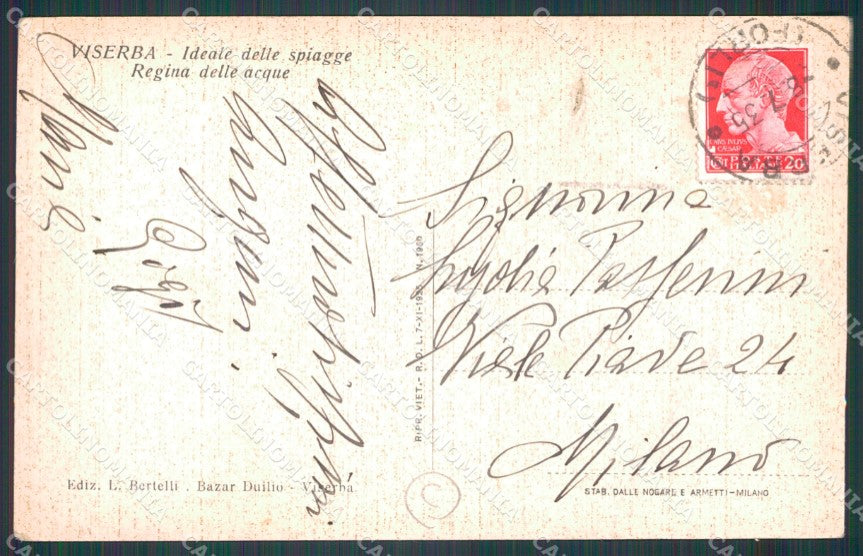 VISERBA - Ideale delle spiagge
Regina delle acque
Affettuosissimi
auguri.
Gigi
Signorina
Lydia Passerini
Viale Piave 24
Milano
RIPR. VIET. - R. D. L. 7-XI-1925 N. 1950
Ediz. L. Bertelli . Bazar Duilio - Viserba
STAB. DALLE NOGARE E ARMETTI - MILANO
(FORLI)
CAIVS IVLIVS
CAESAR
POSTE ITALIANE
CENT 20
C
CARTOLINOMANIA